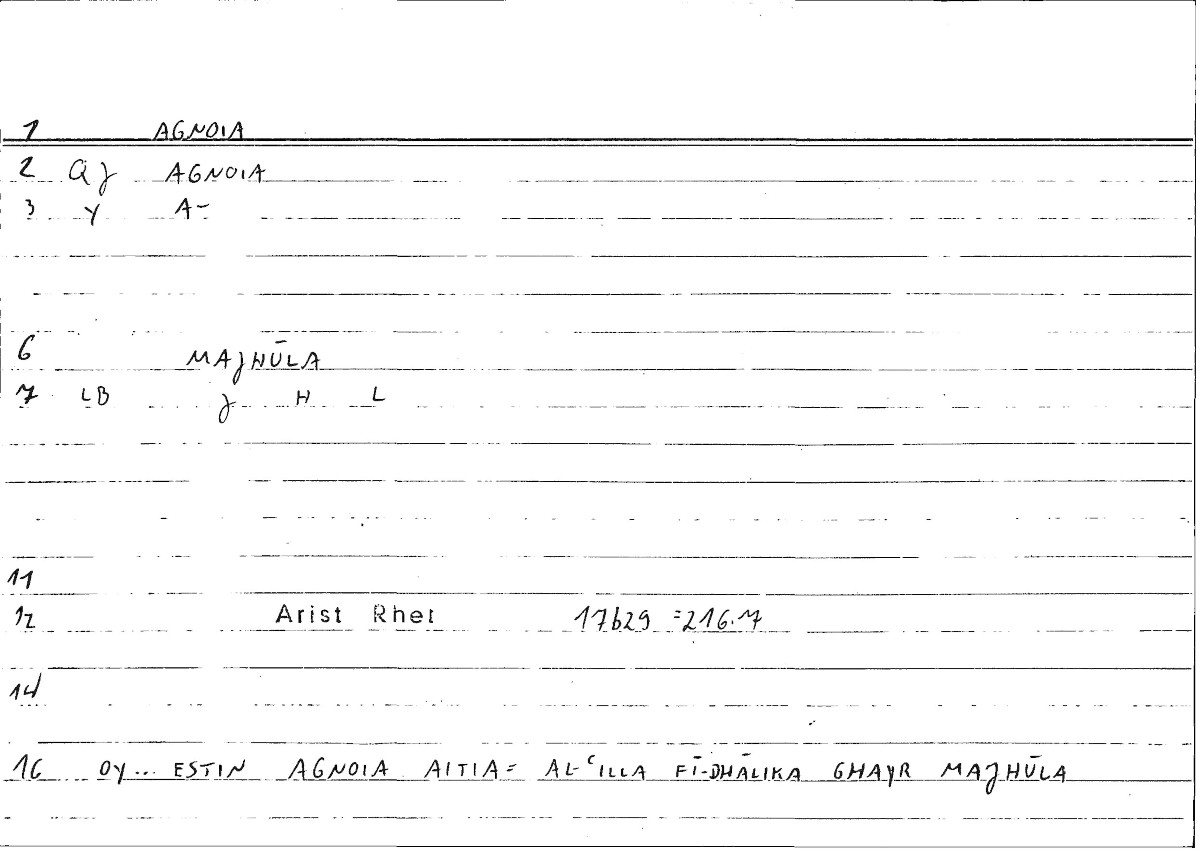 1 AGNOIA
2 QJ AGNOIA
3 Y A-
6 MAJHŪLA
7 LB J H L
11
12 Arist Rhet 17b29 =216.17
14
16 OY... ESTIN AGNOIA AITIA= AL-ʿILLA FĪ-DHĀLIKA GHAYR MAJHŪLA